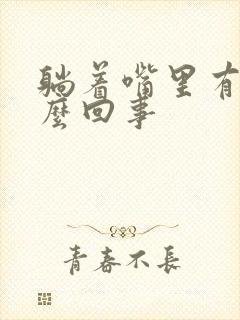 躺着嘴里有
麽回事
青春不長